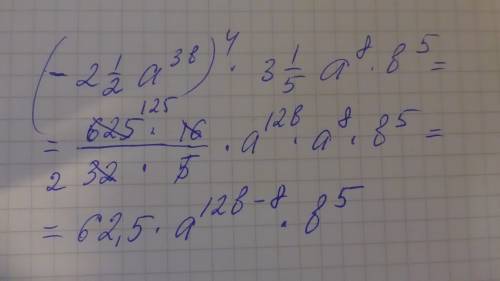 (- 2 1/2 a^3в)^4 · 3 1/5 a^8 · в^5 =
= (625 125 · 16)/(2 32 · 5) · a^12в · a^8 · в^5 =
= 62,5 · a^12в-8 · в^5